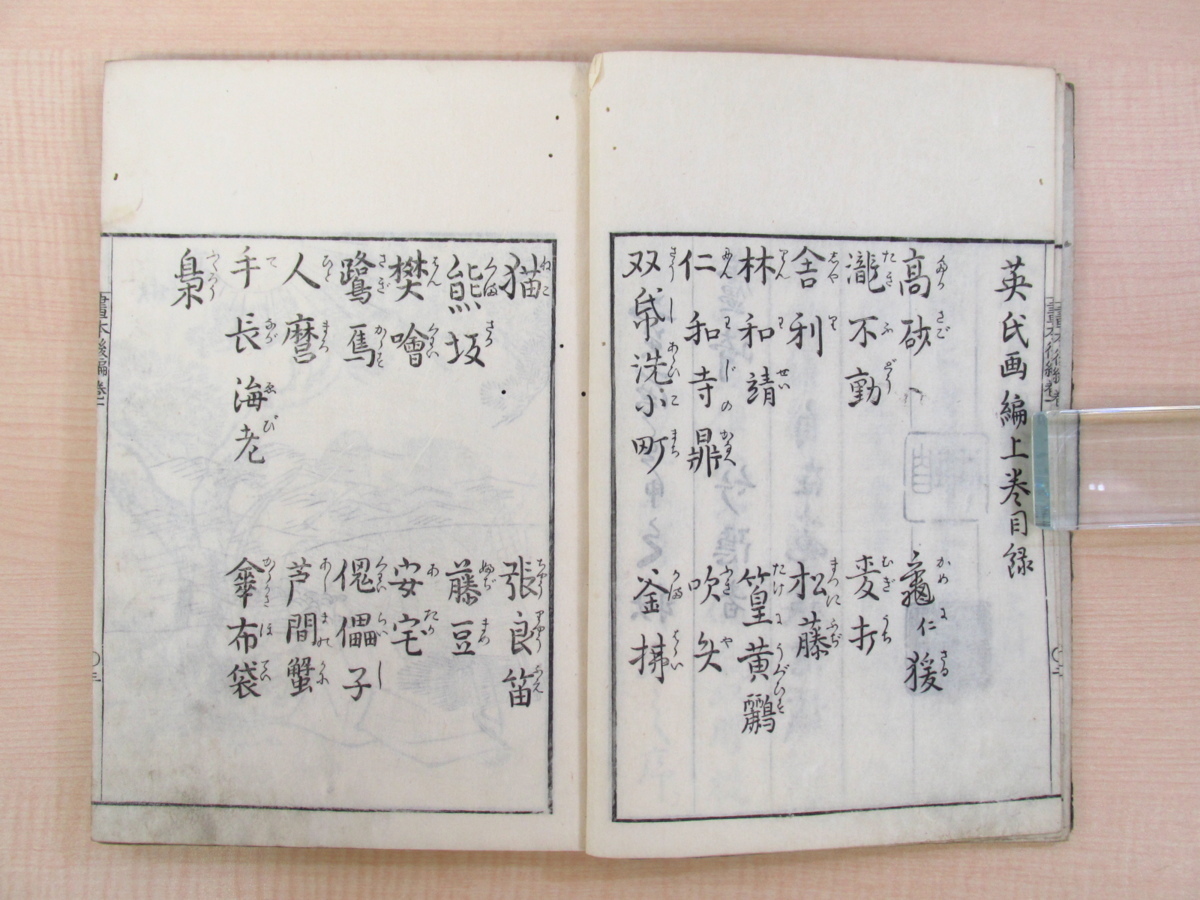 英氏画編上巻目録
高砂　龜仁猨
瀧不動　麦打
舎利　松藤
林和靖　篁黄鸝
仁和寺鼎　吹矢
双帋洗小町　釜拂
猫　張良笛
熊坂　藤豆
樊噲　安宅
鷺烏　傀儡子
人麿　芦間蟹
手長海老　傘布袋
梟
畫本後編